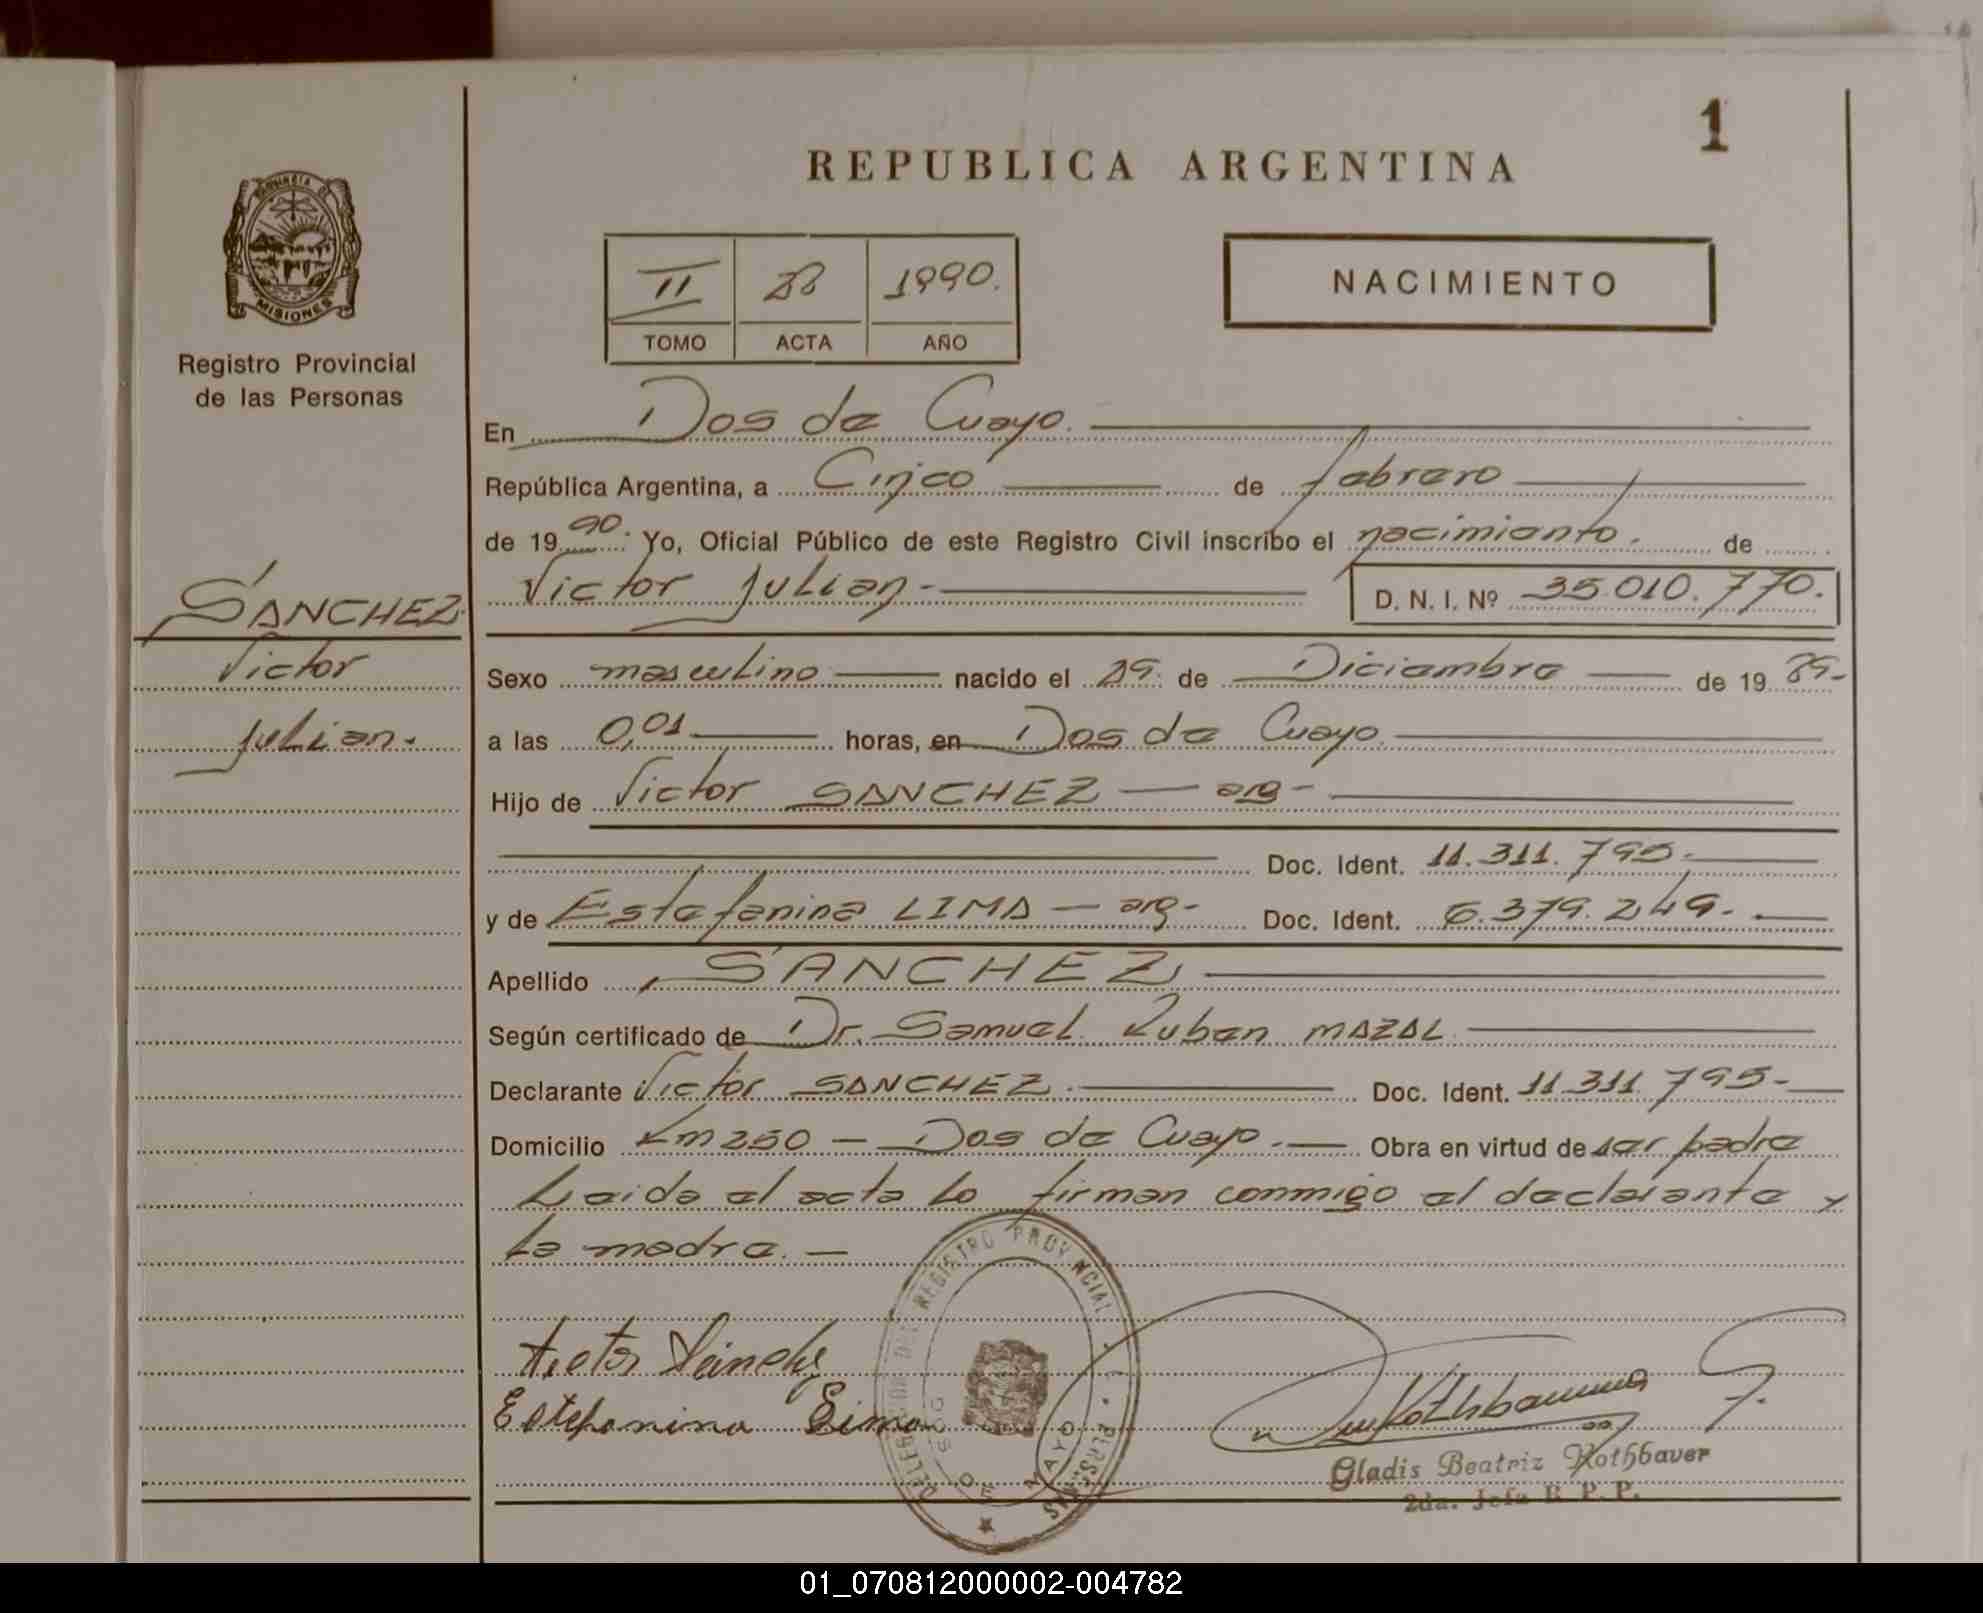 1
REPUBLICA ARGENTINA
PROVINCIA DE
MISIONES
Registro Provincial
de las Personas
II 28 1990.
TOMO ACTA AÑO
NACIMIENTO
En Dos de Mayo.
República Argentina, a Cinco de febrero
de 19 90. Yo, Oficial Público de este Registro Civil inscribo el nacimiento. de
Victor Julian - D. N. I. Nº 35.010.770.
SANCHEZ
Victor
Julian.
Sexo masculino nacido el 29 de Diciembre de 19 89-
a las 0,01 horas, en Dos de Mayo.
Hijo de Victor SANCHEZ — arg-
Doc. Ident. 11.311.795-
y de Estefanina LIMA — arg- Doc. Ident. 6.379.249-
Apellido SANCHEZ
Según certificado de Dr. Samuel Ruben MAZAL
Declarante Victor SANCHEZ. Doc. Ident. 11.311.795-
Domicilio Km 250 — Dos de Mayo. — Obra en virtud de ser padre
Leida el acta lo firman conmigo el declarante y
la madre. —
Victor Sanchez
Estefanina Lima
DELEGACION DEL REGISTRO PROVINCIAL DE LAS PERSONAS
DOS DE MAYO
Gladis Beatriz Rothbauer
2da. Jefa R. P. P.
01_070812000002-004782